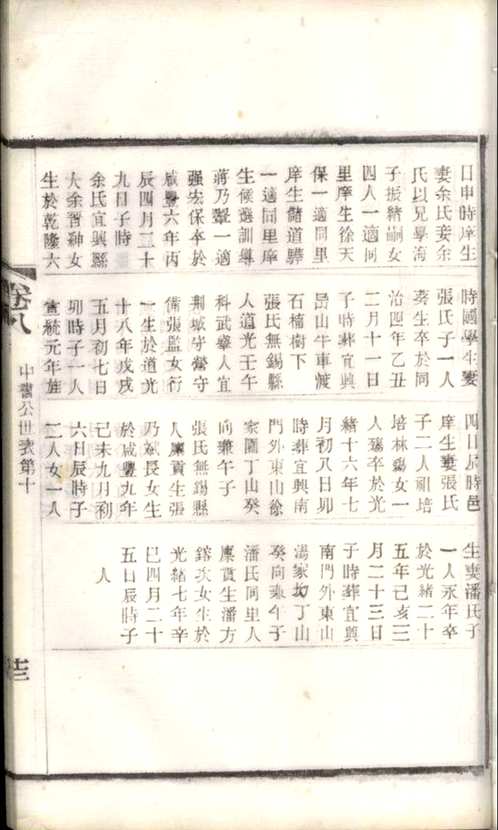 日申時庠生
妻余氏妾余
氏以兄學海
子振緒嗣女
四人一適同
里庠生徐天
保一適同里
庠生儲道驊
一適同里庠
生候選訓導
蔣乃聲一適
强宏保卒於
咸豐六年丙
辰四月二十
九日子時
余氏宜興縣
大余晋紳女
生於乾隆六
時國學生妻
張氏子一人
葵生卒於同
治四年乙丑
二月十一日
子時葬宜興
嵒山牛車渡
石楠樹下
張氏無錫縣
人道光壬午
科武舉人宜
荆城守營守
備張監女行
一生於道光
十八年戊戌
五月初七日
卯時子一人
宣統元年旌
四日辰時邑
庠生妻張氏
子二人祖培
培林殤女一
人殤卒於光
緒十六年七
月初八日卯
時葬宜興南
門外東山徐
家園丁山癸
向兼午子
張氏無錫縣
人廩貢生張
乃斌長女生
於咸豐九年
己未九月初
六日辰時子
二人女一人
生妻潘氏子
一人永年卒
於光緒二十
五年己亥三
月二十三日
子時葬宜興
南門外東山
湯家坳丁山
癸向兼午子
潘氏同里人
廩貢生潘方
次女生於
光緒七年辛
巳四月二十
五日辰時子
人
卷八
中書公世表第十